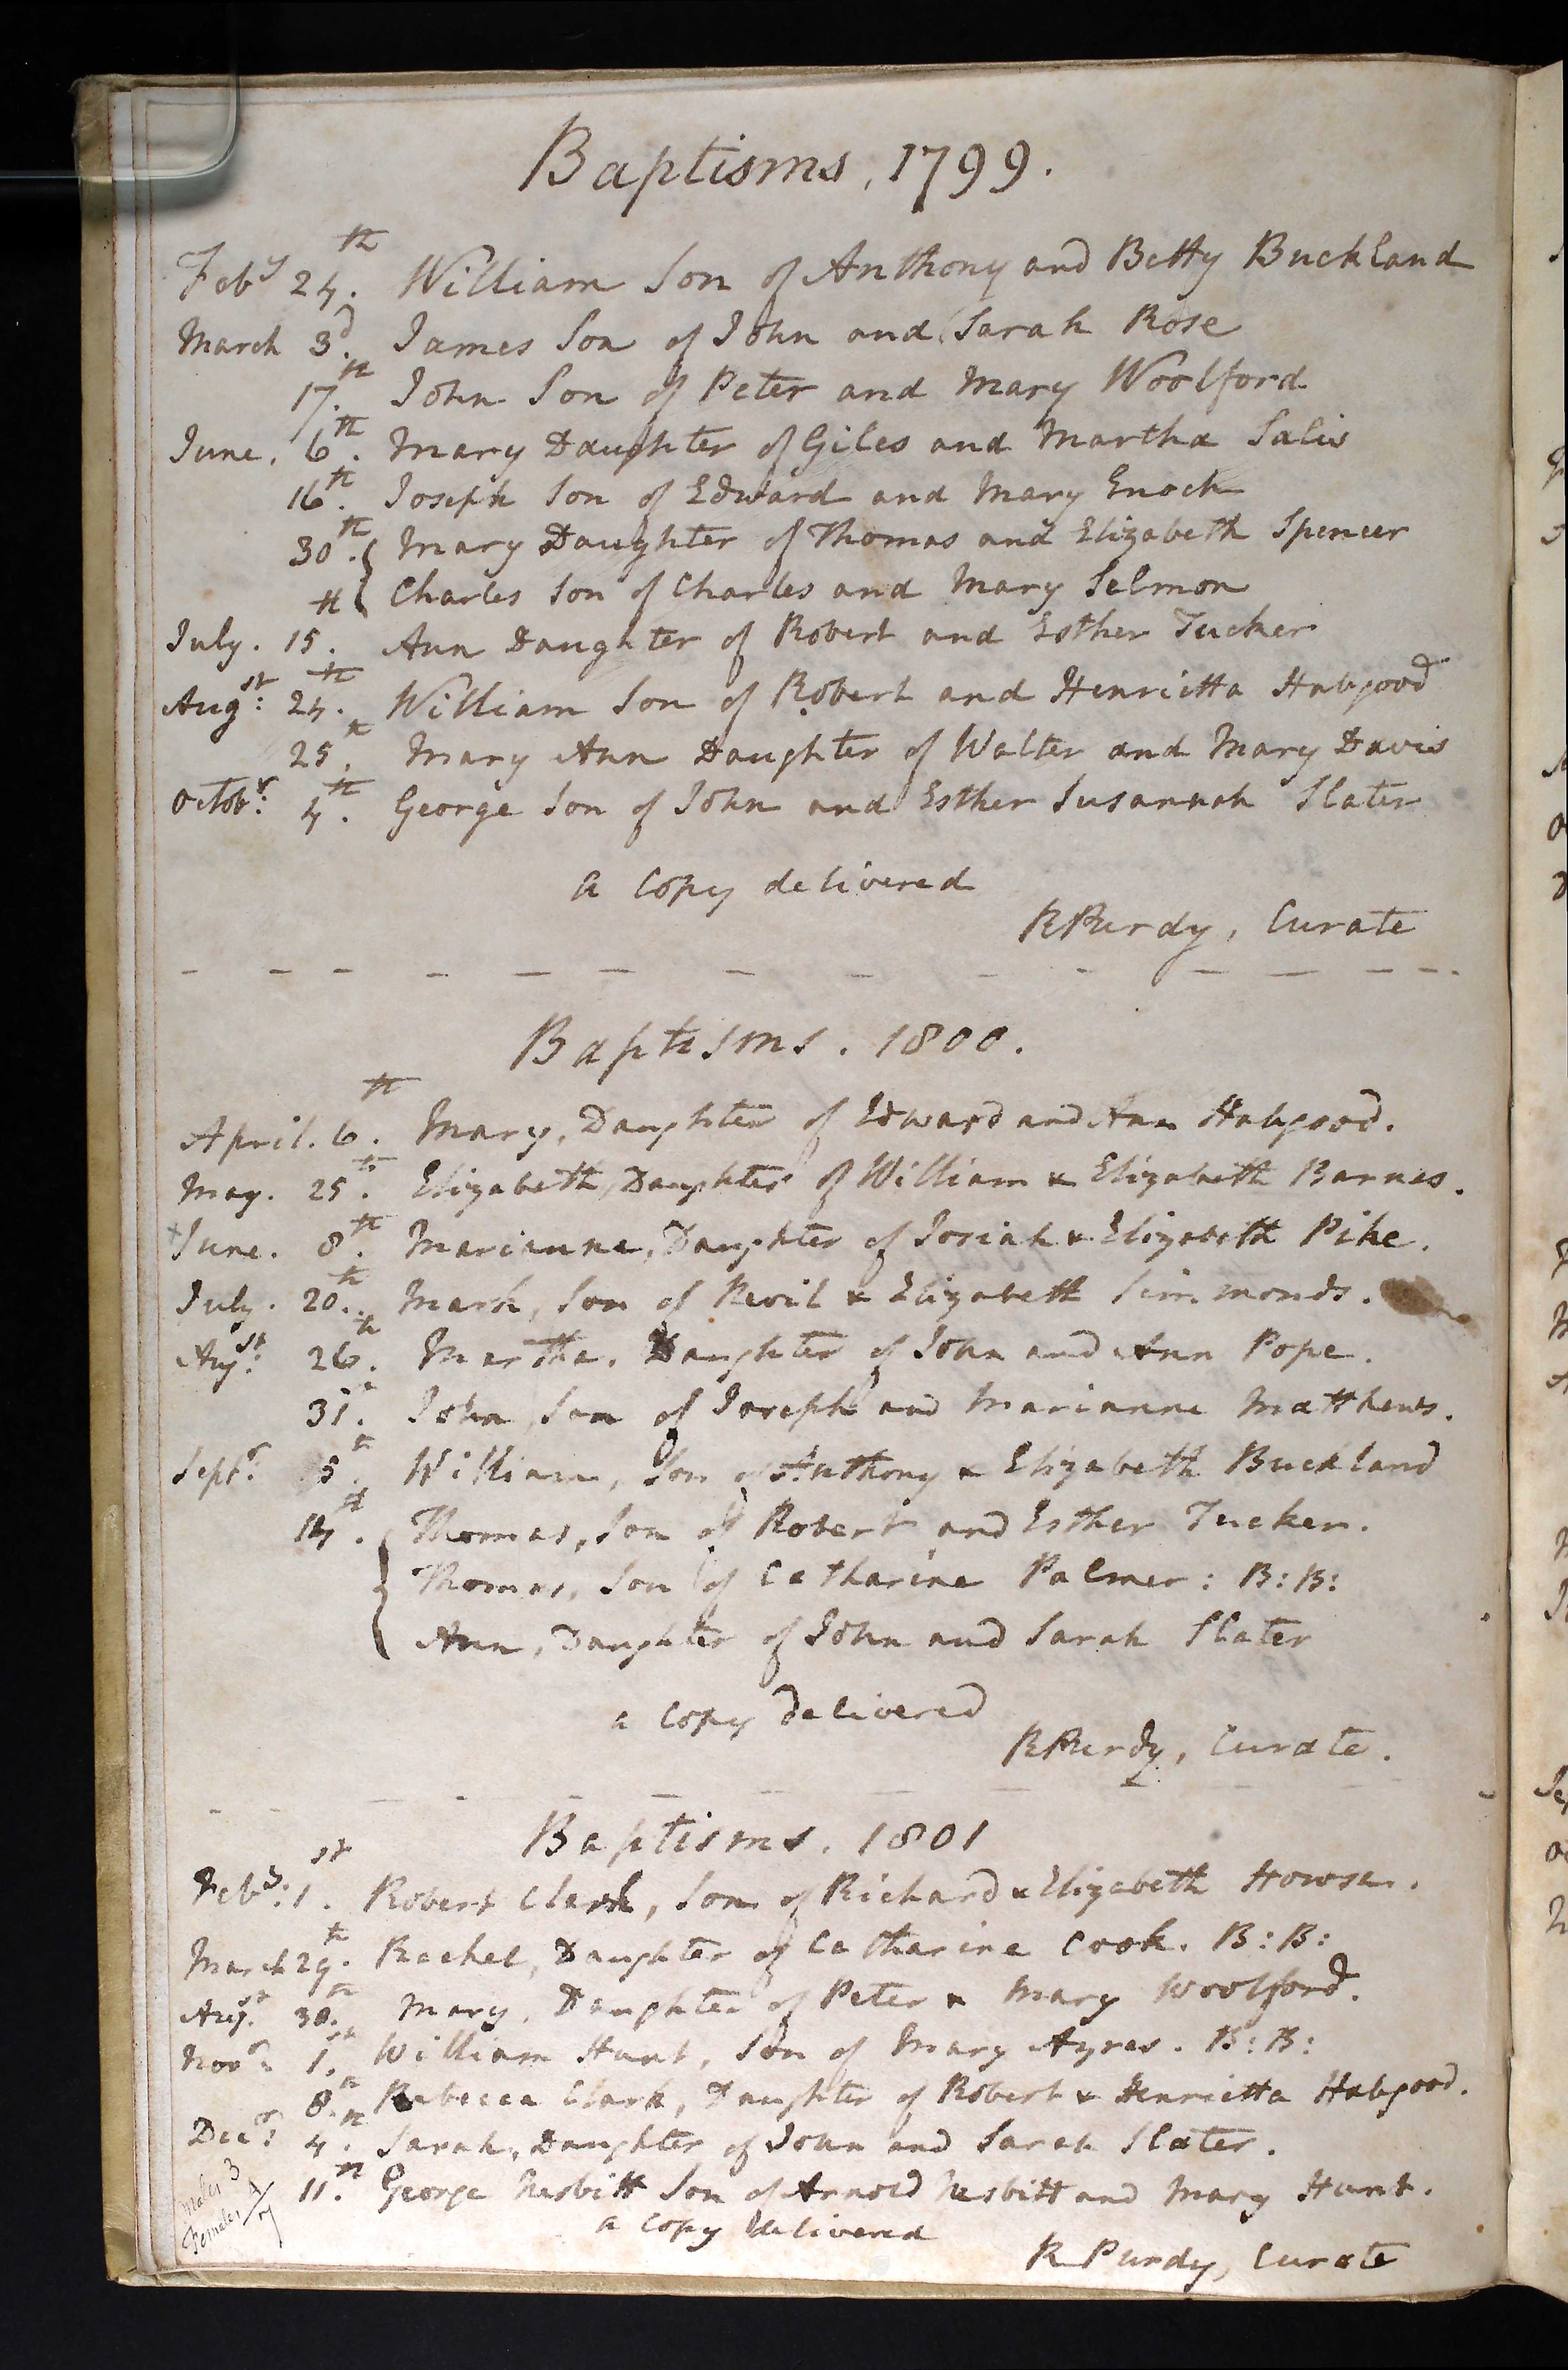 Baptisms, 1799.
Feby 24th. William Son of Anthony and Betty Buckland
March 3d. James Son of John and Sarah Rose
17th. John Son of Peter and Mary Woolford
June. 6th. Mary Daughter of Giles and Martha Salis
16th. Joseph Son of Edward and Mary Enoch
30th. { Mary Daughter of Thomas and Elizabeth Spencer
Charles Son of Charles and Mary Selmon
July. 15th. Ann Daughter of Robert and Esther Tucker
Augst: 24th. William Son of Robert and Henrietta Habgood
25th. Mary Ann Daughter of Walter and Mary Davis
Octobr: 4th. George Son of John and Esther Susannah Slater
a Copy delivered
R Purdy, Curate
Baptisms. 1800.
April. 6th. Mary, Daughter of Edward and Ann Habgood.
May. 25th. Elizabeth, Daughter of William & Elizabeth Barnes.
June. 8th. Marianne, Daughter of Josiah & Elizabeth Pike.
July. 20th. Mark, Son of Nevil & Elizabeth Simmonds.
Augst: 26th. Martha, Daughter of John and Ann Pope.
31st. John, Son of Joseph and Marianne Matthews.
Septr: 5th. William, Son of Anthony & Elizabeth Buckland
14th. { Thomas, Son of Robert and Esther Tucker.
Thomas, Son of Catharine Palmer: B:B:
Ann, Daughter of John and Sarah Slater
a Copy delivered
R Purdy, Curate.
Baptisms. 1801
Feby: 1st. Robert Clark, Son of Richard & Elizabeth Howse.
March 29th. Rachel, Daughter of Catharine Cook. B:B:
Augst. 30th. Mary, Daughter of Peter & Mary Woolford.
Novr: 1st. William Hunt, Son of Mary Ayres. B:B:
8th. Rebecca Clark, Daughter of Robert & Henrietta Habgood.
Decr: 4th. Sarah, Daughter of John and Sarah Slater.
11th. George Nesbitt Son of Arnold Nesbitt and Mary Hunt.
a Copy delivered
R Purdy, Curate
Males 3
Females 4
7